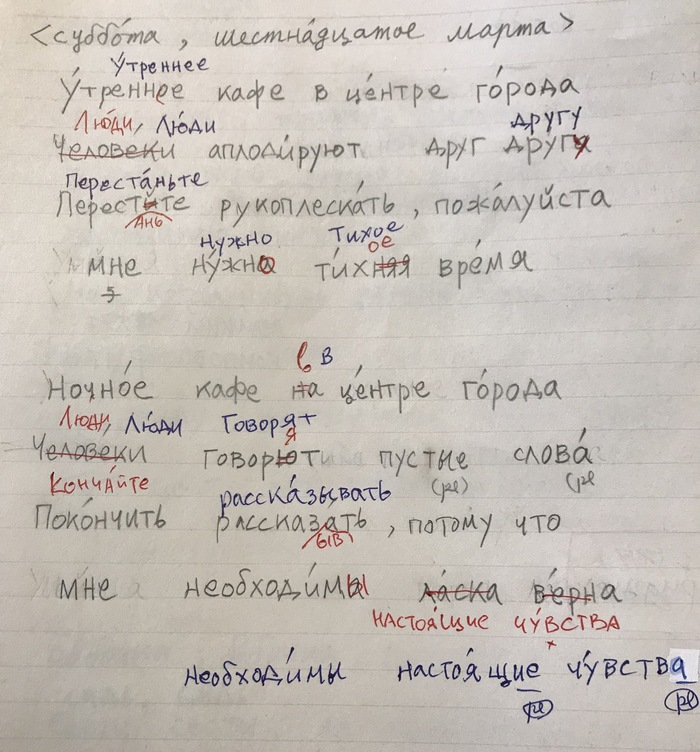 <суббо́та, шестна́дцатое марта>
У́треннее
У́треннее кафе в це́нтре го́рода
Лю́ди, Лю́ди другу
Человеки аплоди́руют друг другу
Переста́ньте
Перестйте рукоплеска́ть, пожа́луйста
Ань
нужно Тихое
ое
мне ну́жна ти́хняя вре́мя
в в
Ночно́е кафе на це́нтре го́рода
Лю́ди, Лю́ди Говоря́т
я
Челове́ки говорюти пустые слова́
Конча́йте расска́зывать (pl) (pl
Поко́нчить рассказать, потому что
ыв
мне необходи́мы ла́ска ве́рна
настоя́щие чу́вства
необходи́мы настоя́щие чу́вства
pl pl